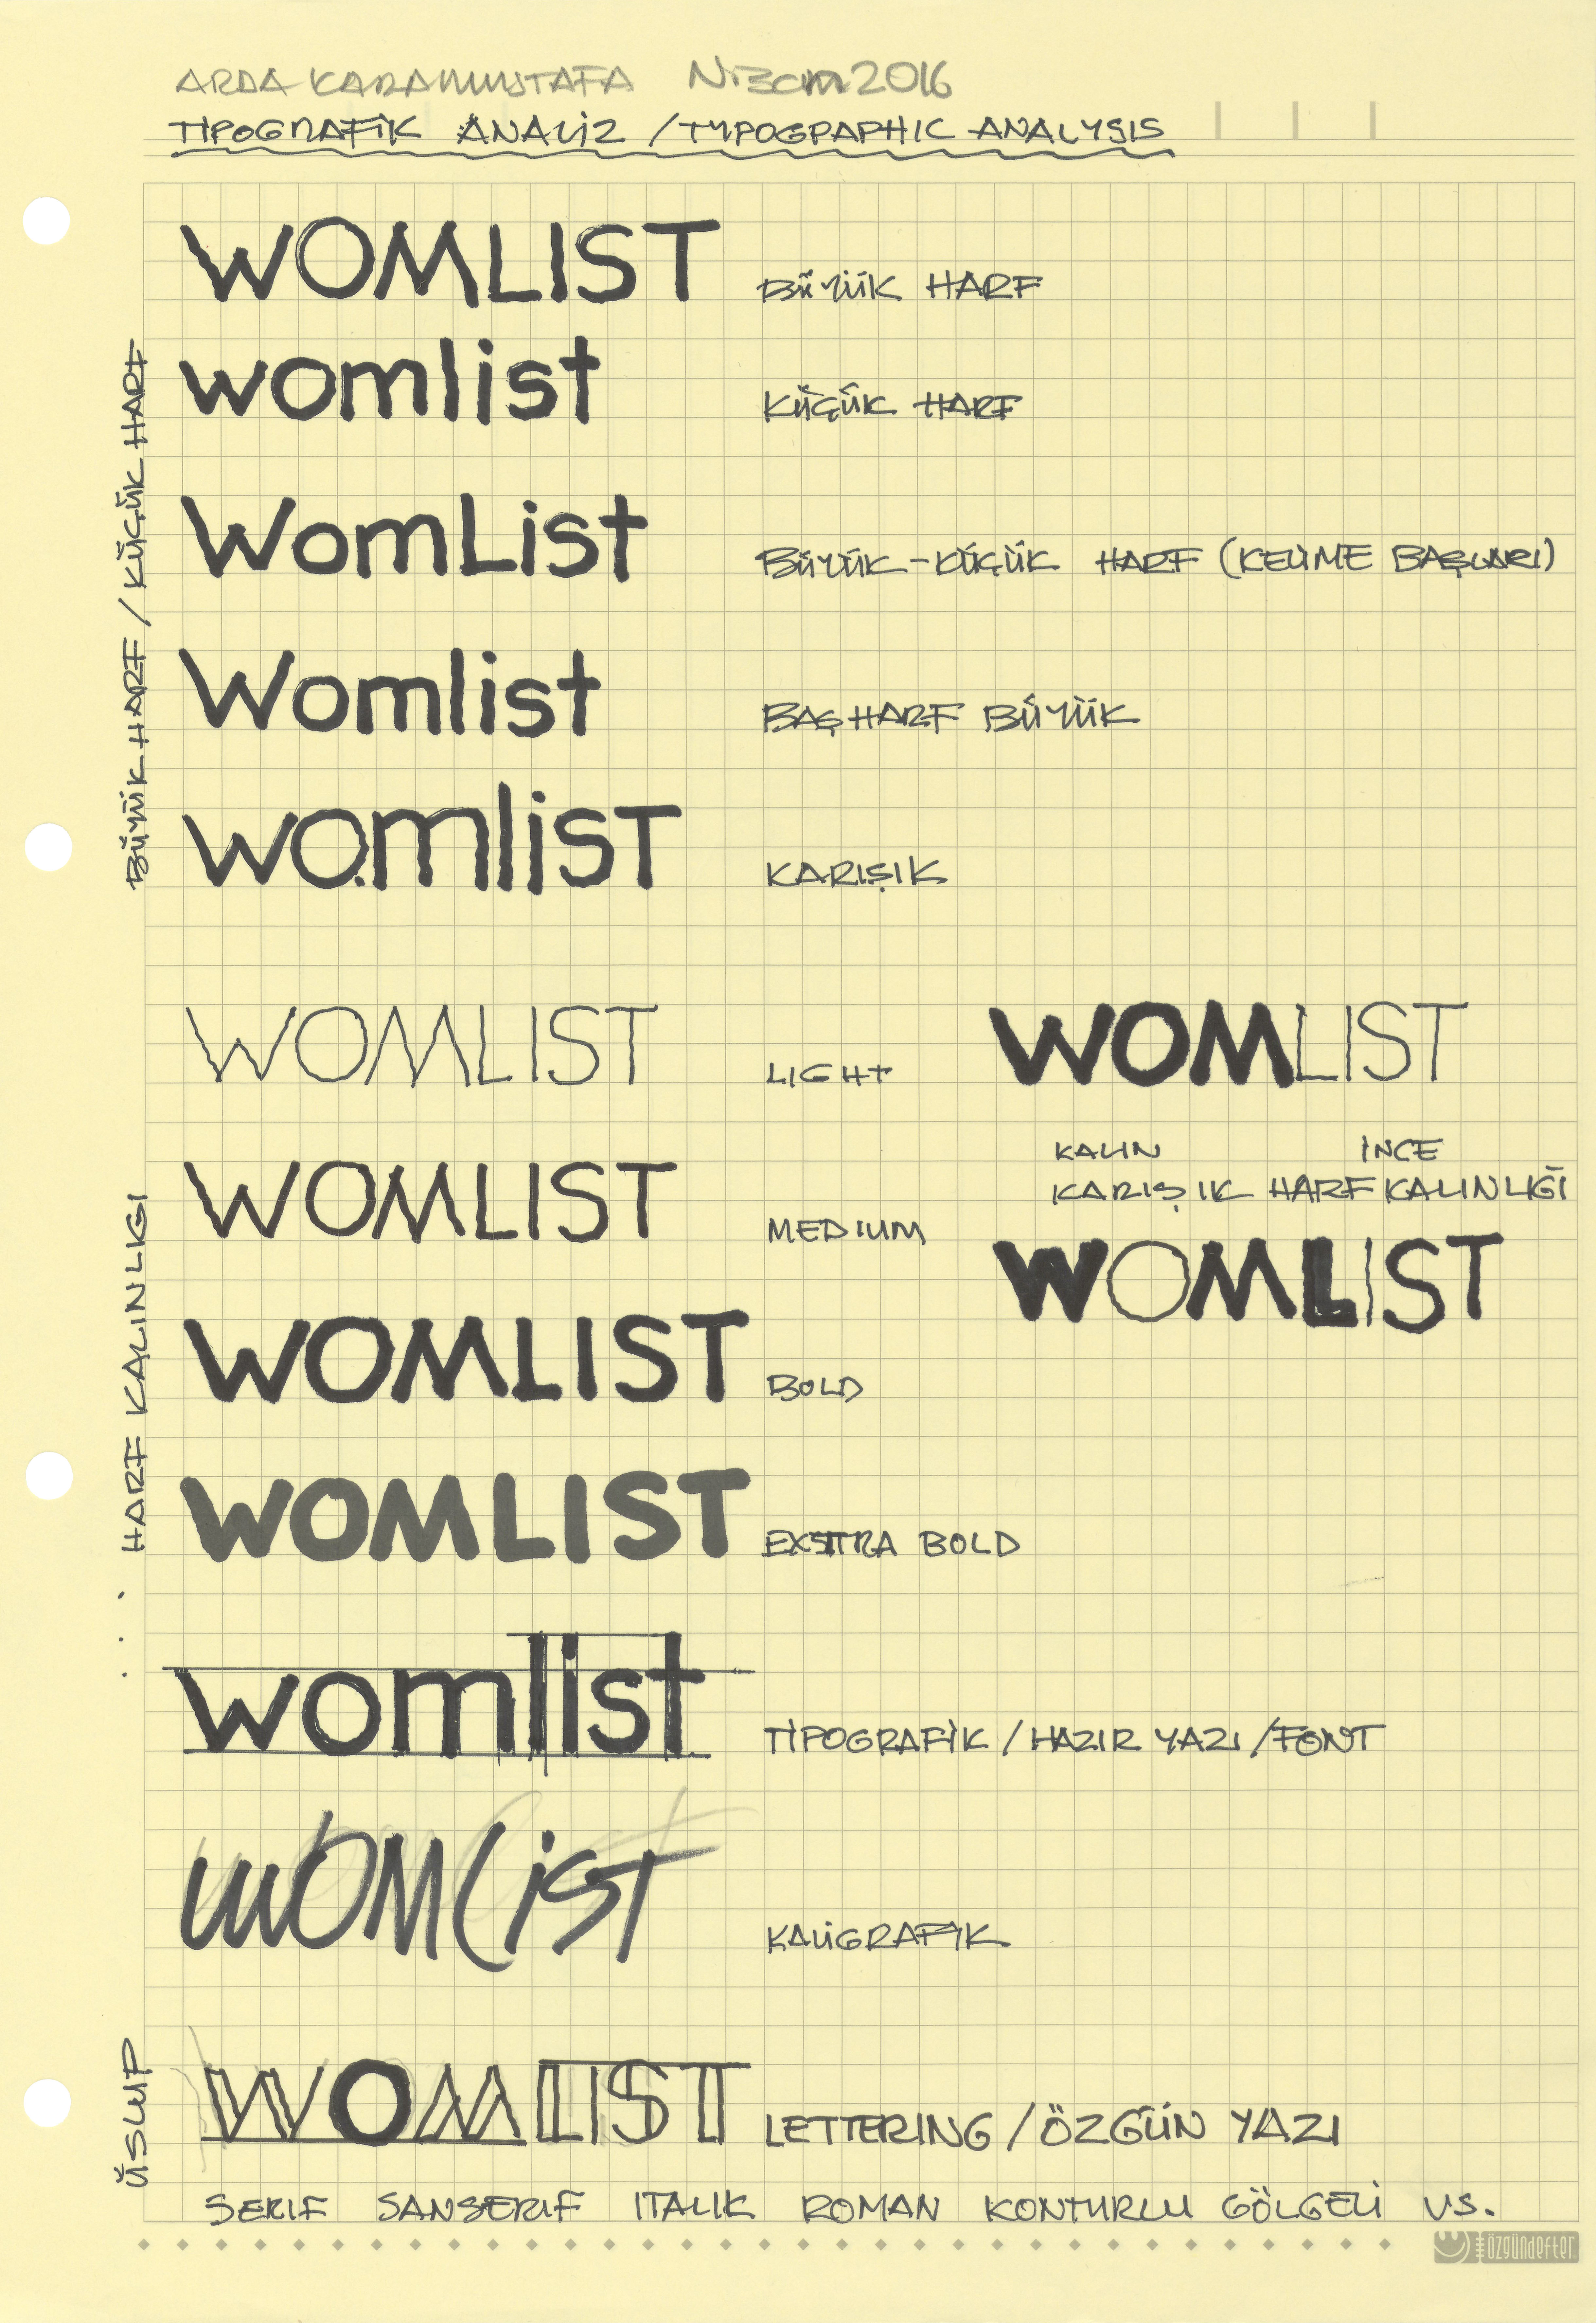 ARDA KARAMUSTAFA Nisan 2016
TİPOGRAFİK ANALİZ / TYPOGRAPHIC ANALYSIS
BÜYÜK HARF / KÜÇÜK HARF
WOMLIST BÜYÜK HARF
womlist KÜÇÜK HARF
WomList BÜYÜK-KÜÇÜK HARF (KELİME BAŞLARI)
Womlist BAŞ HARF BÜYÜK
womlisT KARIŞIK
HARF KALINLIGI
WOMLIST LIGHT
WOMLIST
KALIN İNCE
KARIŞIK HARF KALINLIĞI
WOMLIST
WOMLIST MEDIUM
WOMLIST BOLD
WOMLIST EXSTRA BOLD
womlist TİPOGRAFİK / HAZIR YAZI / FONT
WOMLiST KALİGRAFİK
ÜSLUP
WOMLIST LETTERING / ÖZGÜN YAZI
SERIF SANSERIF ITALIK ROMAN KONTURLU GÖLGELİ VS.
özgündefter